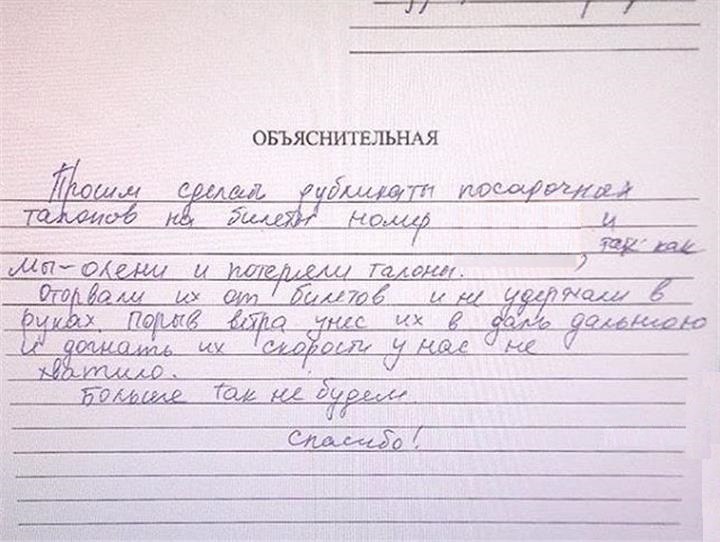 ОБЪЯСНИТЕЛЬНАЯ
Просим сделать дубликаты посадочных
талонов на билеты номер и
, так как
мы - олени и потеряли талоны.
Оторвали их от билетов и не удержали в
руках. Порыв ветра унес их в даль дальнюю
и догнать их скорости у нас не
хватило.
Больше так не будем.
Спасибо!